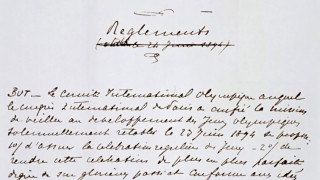 Règlements
BUT — Le Comité International Olympique auquel
le congrès International de Paris a confié la mission
de veiller au développement des Jeux Olympiques
solennellement rétablis le 23 Juin 1894 se propose
1o/ d'assurer la célébration régulière des Jeux — 2o/ de
rendre cette célébration de plus en plus parfaite
digne de son glorieux passé et conforme aux idées